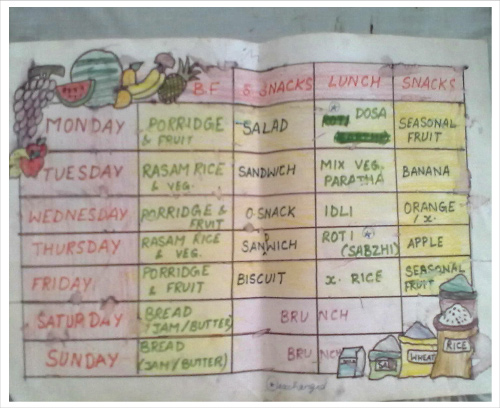 B.F S SNACKS LUNCH SNACKS
MONDAY PORRIDGE & FRUIT SALAD ROTI DOSA SEASONAL FRUIT
TUESDAY RASAM RICE & VEG. SANDWICH MIX VEG. PARATHA BANANA
WEDNESDAY PORRIDGE & FRUIT O-SNACK IDLI ORANGE / x.
THURSDAY RASAM RICE & VEG. SANWICH ROTI (SABZHI) APPLE
FRIDAY PORRIDGE & FRUIT BISCUIT x. RICE SEASONAL FRUIT
SATURDAY BREAD (JAM/BUTTER) BRUNCH
SUNDAY BREAD (JAM/BUTTER) BRUNCH
SALT WHEAT RICE